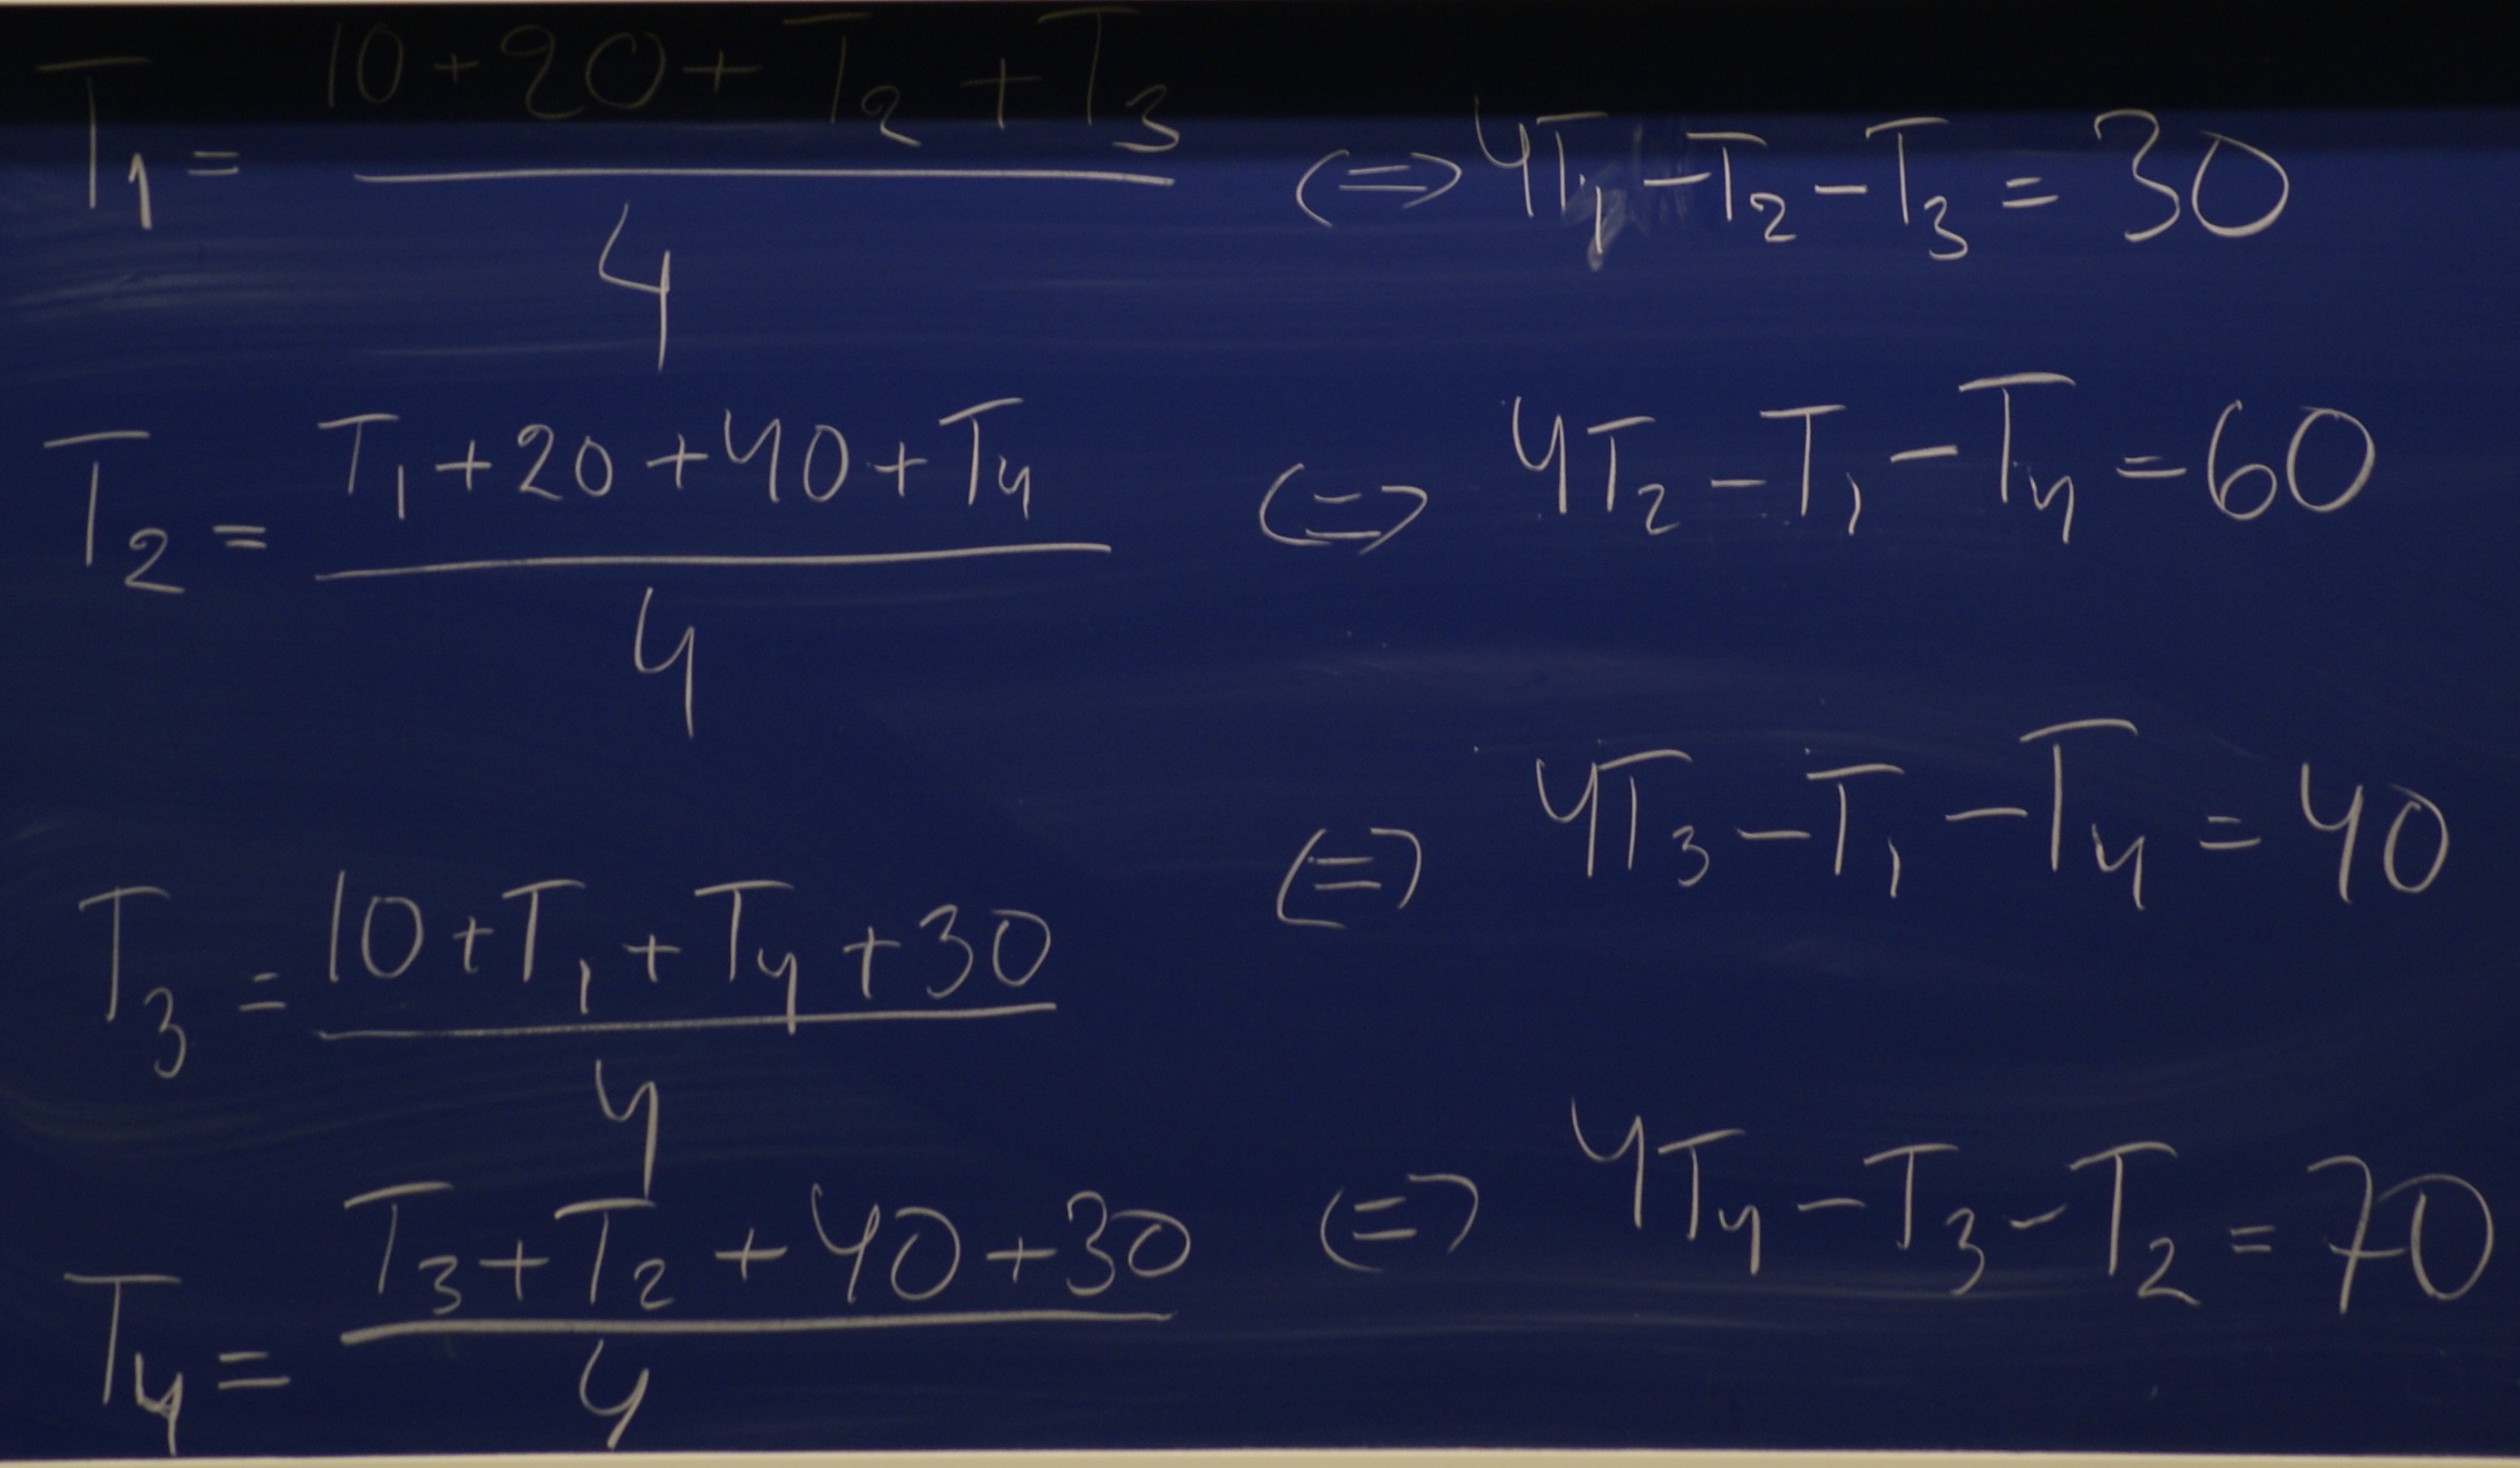 T₁ = (10+20+T₂+T₃)/4 (=) 4T₁-T₂-T₃=30
T₂ = (T₁+20+40+T₄)/4 (=) 4T₂-T₁-T₄=60
T₃ = (10+T₁+T₄+30)/4 (=) 4T₃-T₁-T₄=40
T₄ = (T₃+T₂+40+30)/4 (=) 4T₄-T₃-T₂=70